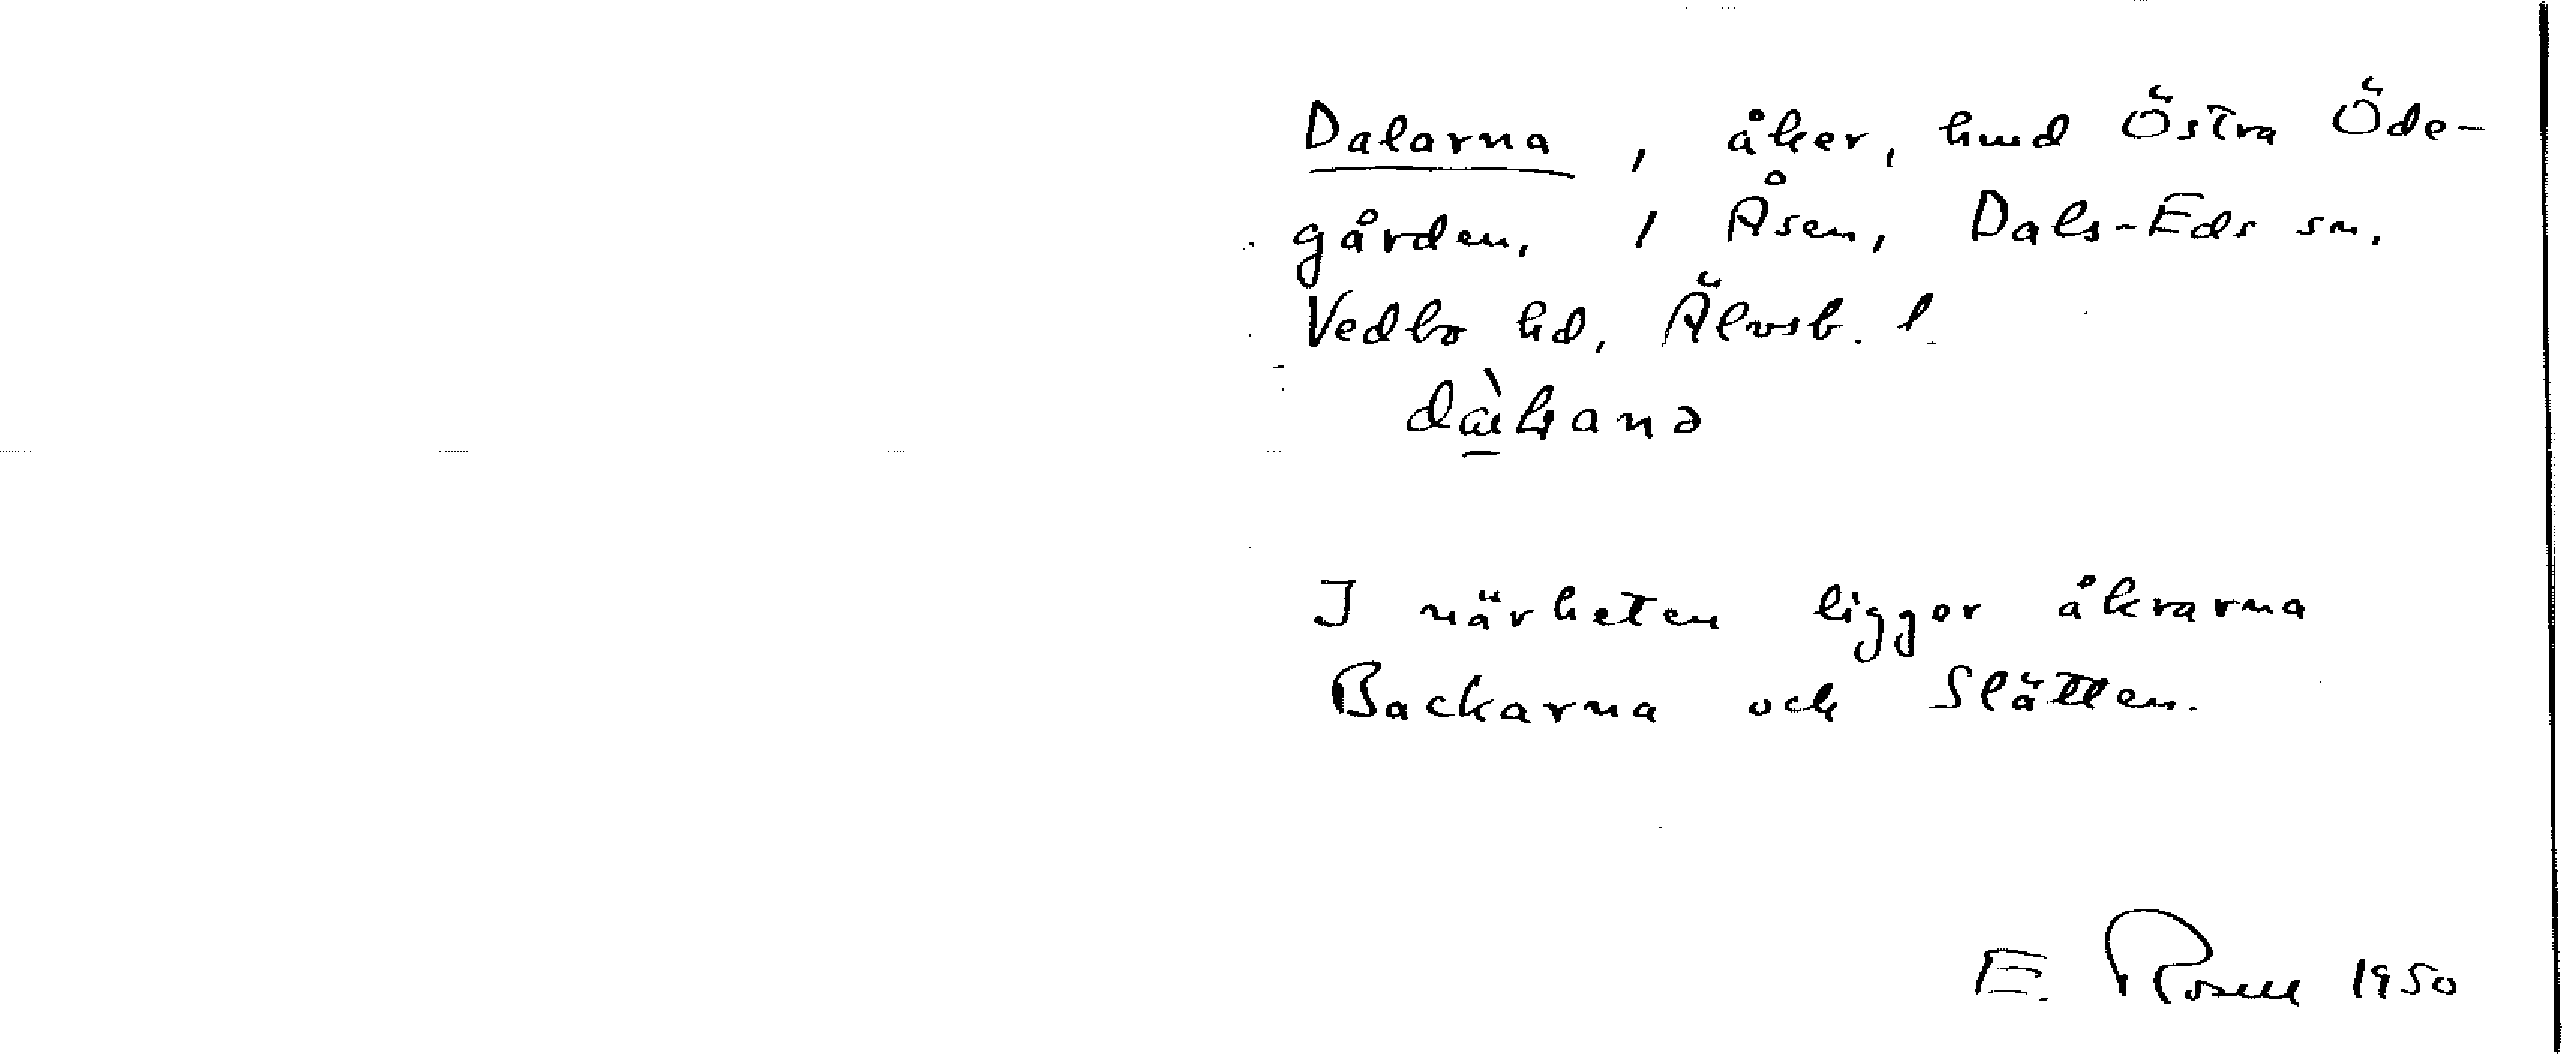 Dalarna, åker, hmd Östra Öde-
gården, 1 Åsen, Dals-Eds sn,
Vedbo hd, Älvsb. l.
I närheten ligger åkrarna
Backarna och Slätten.
E. Rosell 1950